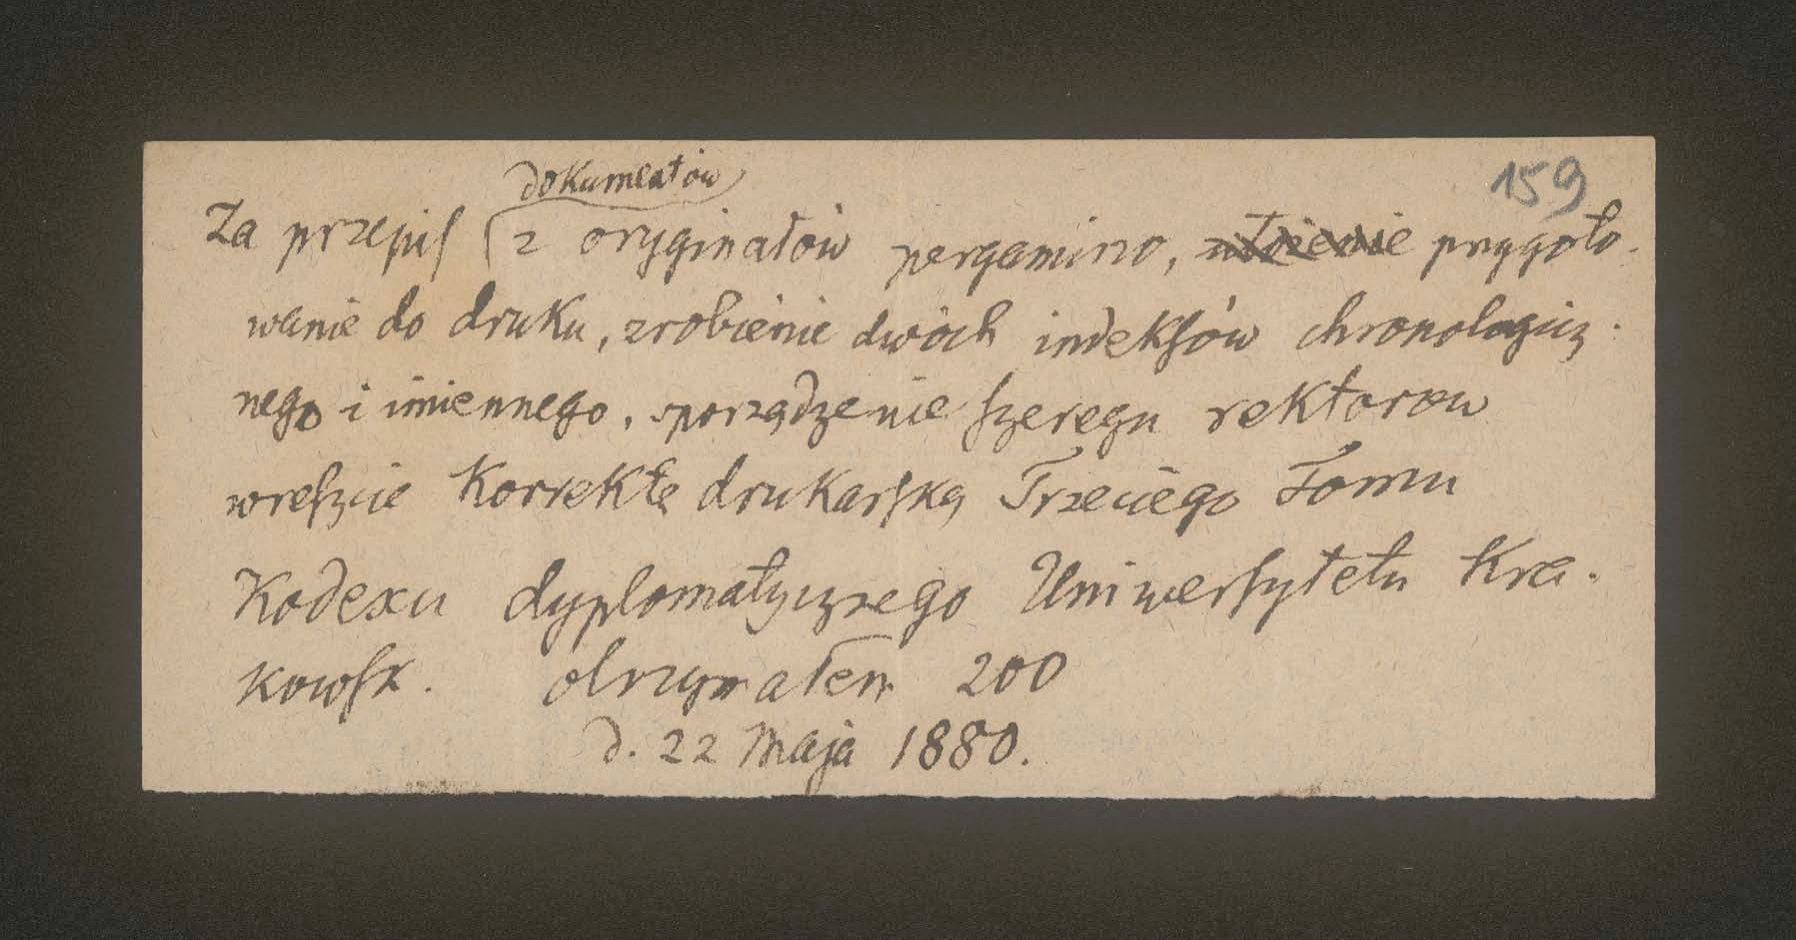 159
dokumentów
Za przepis z oryginałów pergamino, ułożenie przygoto-
wanie do druku, zrobienie dwóch indeksów chronologicz-
nego i imiennego, sporządzenie szeregu rektorow
wreszcie Korrektę drukarską Trzeciego Tomu
Kodexu dyplomatycznego Uniwersytetu Kra-
kowsk. otrzymałem 200
d. 22 Maja 1880.